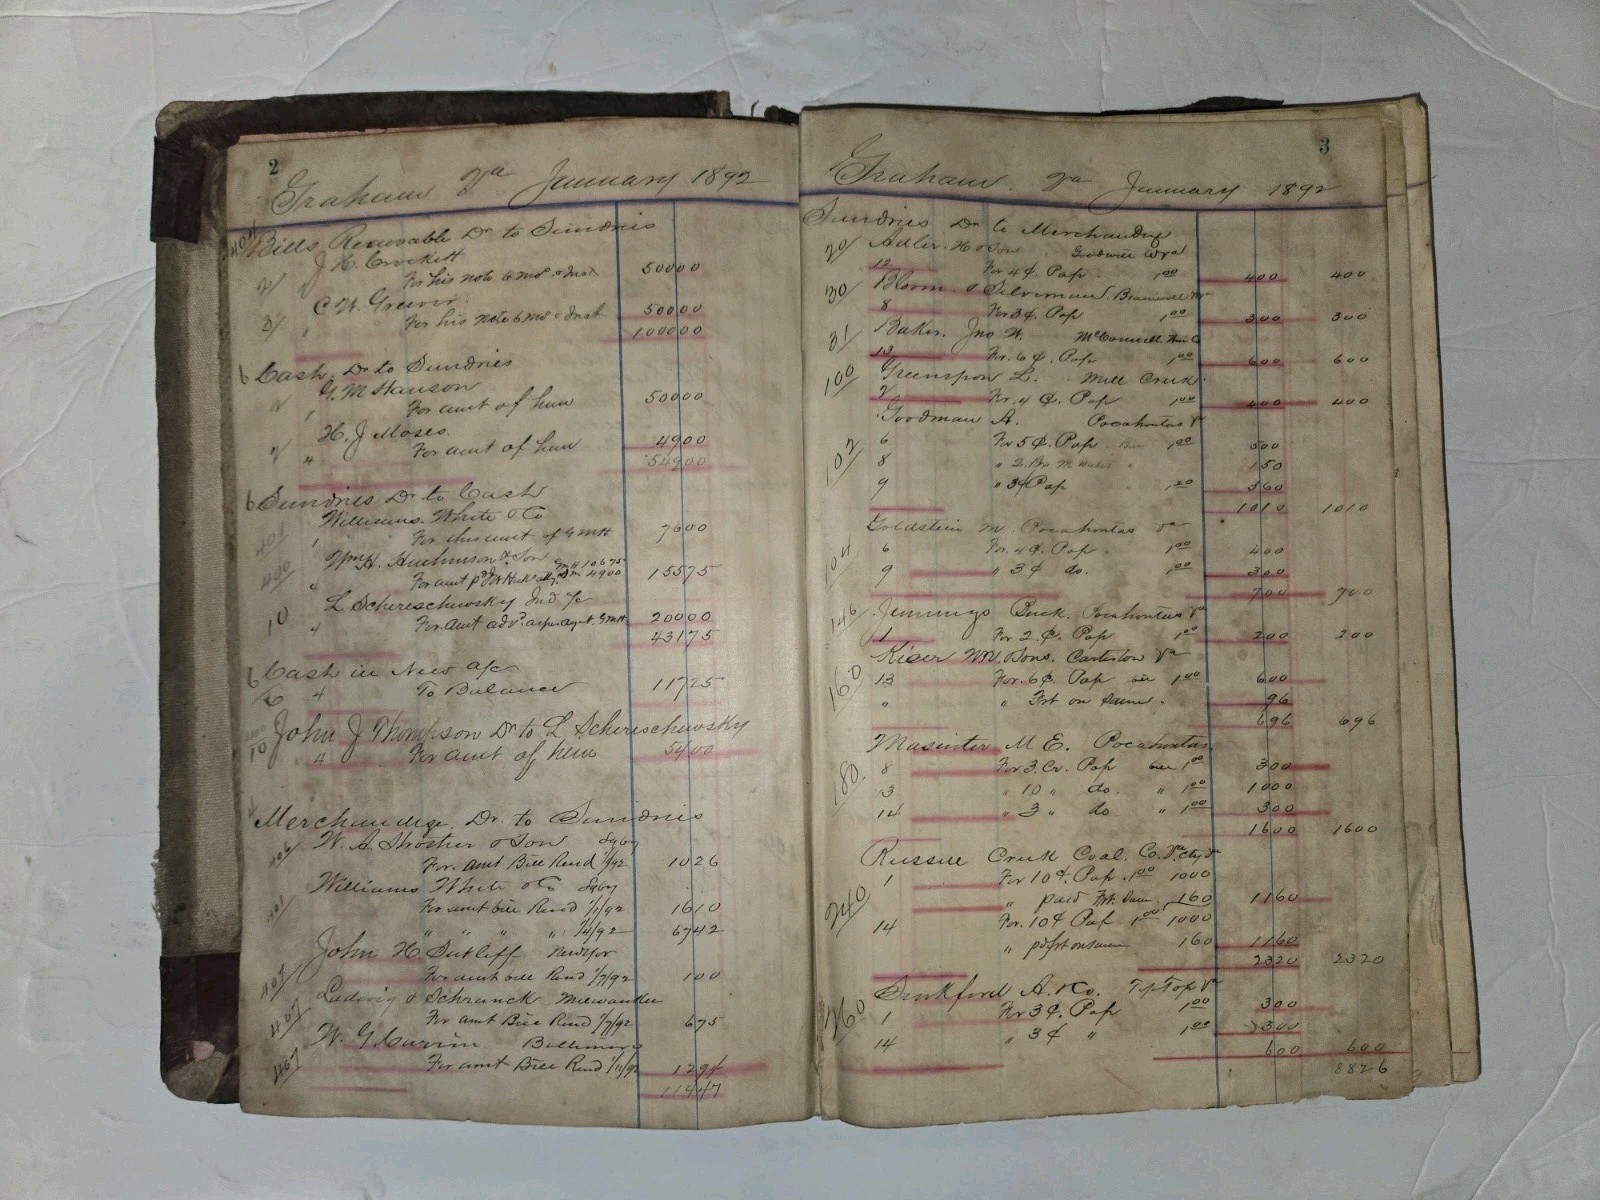 2
Graham Va January 1892
404 Bills Receivable Dr to Sundries
J H. Crockett
2/ For his note 6 mos 50000
C W. Greever
3/ " For his note 6 mos 50000
100000
6 Cash Dr to Sundries
G. M Hanson
2 " For amt of him 50000
H. J Moses
2/ " For amt of him 4900
54900
6 Sundries Dr to Cash
Williams. White & Co
401 " For this amt of GMH 7600
Wm H. Hutchinson & Son GMH 10675
400 " For amt pd 4900 15575
L Schereschewsky Ind a/c
10 " For amt adv. GMH 20000
43175
6 Cash in New a/c
6 " To Balance 11725
John J Thompson Dr to L Schereschewsky
10 " For amt of him 5400
4 Merchandize Dr. to Sundries
406 W. A. Strother & Son
For. amt Bill Rend 1/92 1026
Williams White & Co
401 For amt bill Rend 1/1/92 1610
" " " " 1/4/92 6742
John H Sutliff
403 For amt bill Rend 1/7/92 100
Ludwig & Schranck Milwaukee
407 For amt Bill Rend 1/7/92 675
W. G. Baltimore
467 For amt Bill Rend 1/11/92 1294
11447
3
Graham. Va January 1892
Sundries Dr to Merchandize
20/ Adler. H & Son Goodwill WVa
12 For 4 ¢. Pop. 1 00 400 400
30 Bloom & Silverman. Bramwell
8 For 3 ¢. Pop 1 00 300 300
31 Baker. Jno W.
13 For. 6 ¢. Pop 1 00 600 600
100 Greenspon L. Mill Creek
2 For. 4 ¢. Pop 1 00 400 400
Goodman A. Pocahontas Va
102 6 For 5 ¢. Pop 1 00 500
8 " 2 150
9 " 3 ¢ Pop " 1 20 360
1010 1010
Goldstein M. Pocahontas Va
104 6 For. 4 ¢. Pop. 1 00 400
9 " 3 ¢ do. 1 00 300
700 700
146 Jennings Buck. Pocahontas Va
1 For 2. ¢. Pop 1 00 200 200
Kiser Sons. Va
160 13 For. 6 ¢. Pop 1 00 600
" " Frt on Same. 96
696 696
Masinter M E. Pocahontas
180. 8 For 3. Cr. Pop 1 00 300
13 " 10 " do. " 1 00 1000
14 " 3 " do " 1 00 300
1600 1600
Russell Creek Coal. Co.
240 1 For 10 ¢. Pop. 1 00 1000
" paid Frt. Same 160 1160
14 For. 10 ¢ Pop 1 00 1000
" pd frt on same 160 1160
2320 2320
260 Sinkford A. & Co. Tip Top Va
1 For 3 ¢. Pop 1 00 300
14 " 3 ¢ " 1 00 300
600 600
8826